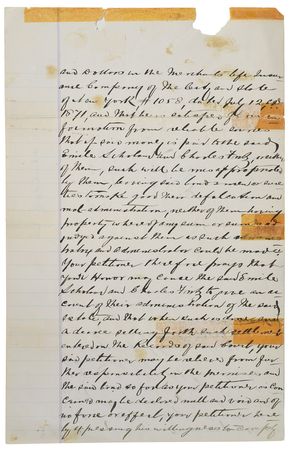 and Dollars in the Merchants Life Insur
ance Company of the City and State
of New York # 1058, dated July 12
1871, and that he is satisfied from in
formation from reliable sources
that if said money is paid to the said
Emile Scholar and Charles Firtz, neither
of them, such will be misappropriated
by them, leaving said bond & securi
ties to make good their defalcation and
mal administration, neither of them having
property whereof any sum or sums ad
judged against them as such adminis
trators and Administrator could be made
Your petitioner therefore prays that
your Honor may cause the said Emile
Scholar and Charles Firtz to give an ac
count of their administration of the said
estate, and that when such is done and
a decree settling forth such settlement
entered on the Records of said Court, your
said petitioner may be relieved from fur
ther responsibility in the premises and
the said bond so far as your petitioner is con
cerned may be declared null and void and of
no force or effect, your petitioner here
by expressing his willingness to comply